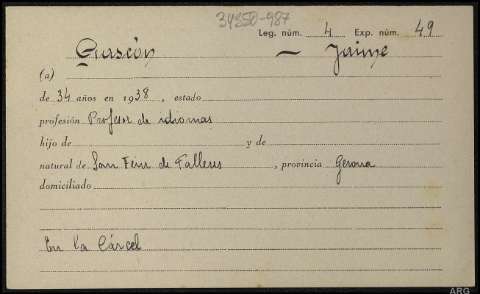 34350-987
Leg. núm. 4 Exp. núm. 49
Gascón — Jaime
(a)
de 34 años en 1938, estado
profesión Profesor de idiomas
hijo de y de
natural de San Feliu de , provincia Gerona
domiciliado
En la Cárcel
ARG